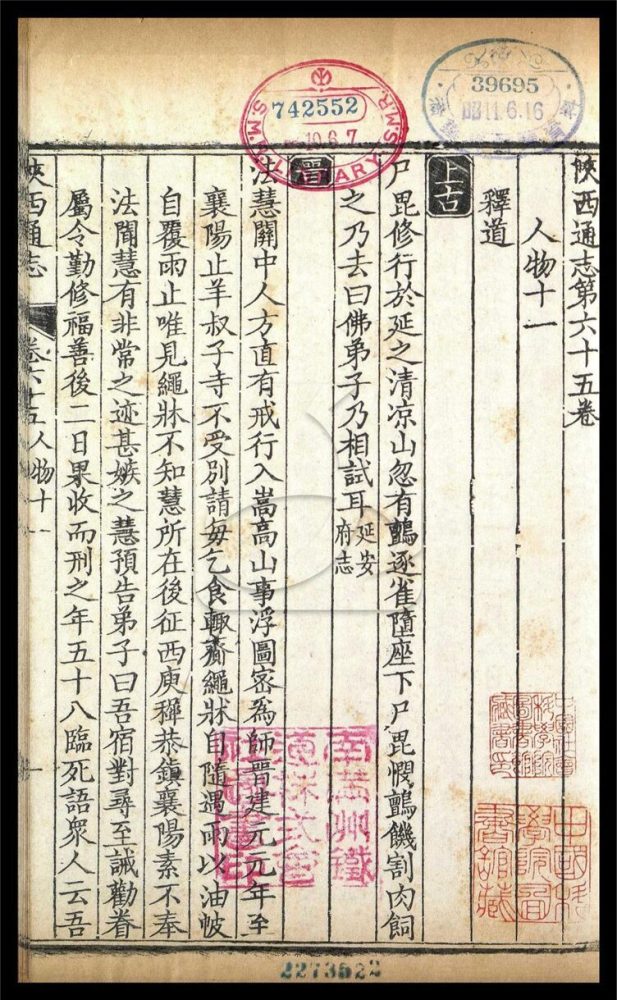 陝西通志第六十五卷
人物十一
釋道
上古
尸毘修行於延之清凉山忽有鸇逐雀墮座下尸毘憫鸇饑割肉飼
之乃去曰佛弟子乃相試耳延安府志
晉
法慧關中人方直有戒行入嵩高山事浮圖宻為師晉建元元年至
襄陽止羊叔子寺不受別請每乞食輙齎繩牀自隨遇雨以油帔
自覆雨止唯見繩牀不知慧所在後征西庾稺恭鎮襄陽素不奉
法聞慧有非常之迹甚嫉之慧預告弟子曰吾宿對尋至誡勸眷
屬令勤修福善後二日果收而刑之年五十八臨死語衆人云吾
陝西通志 卷六十五 人物十一
742552
10.6.7
39695
2273522